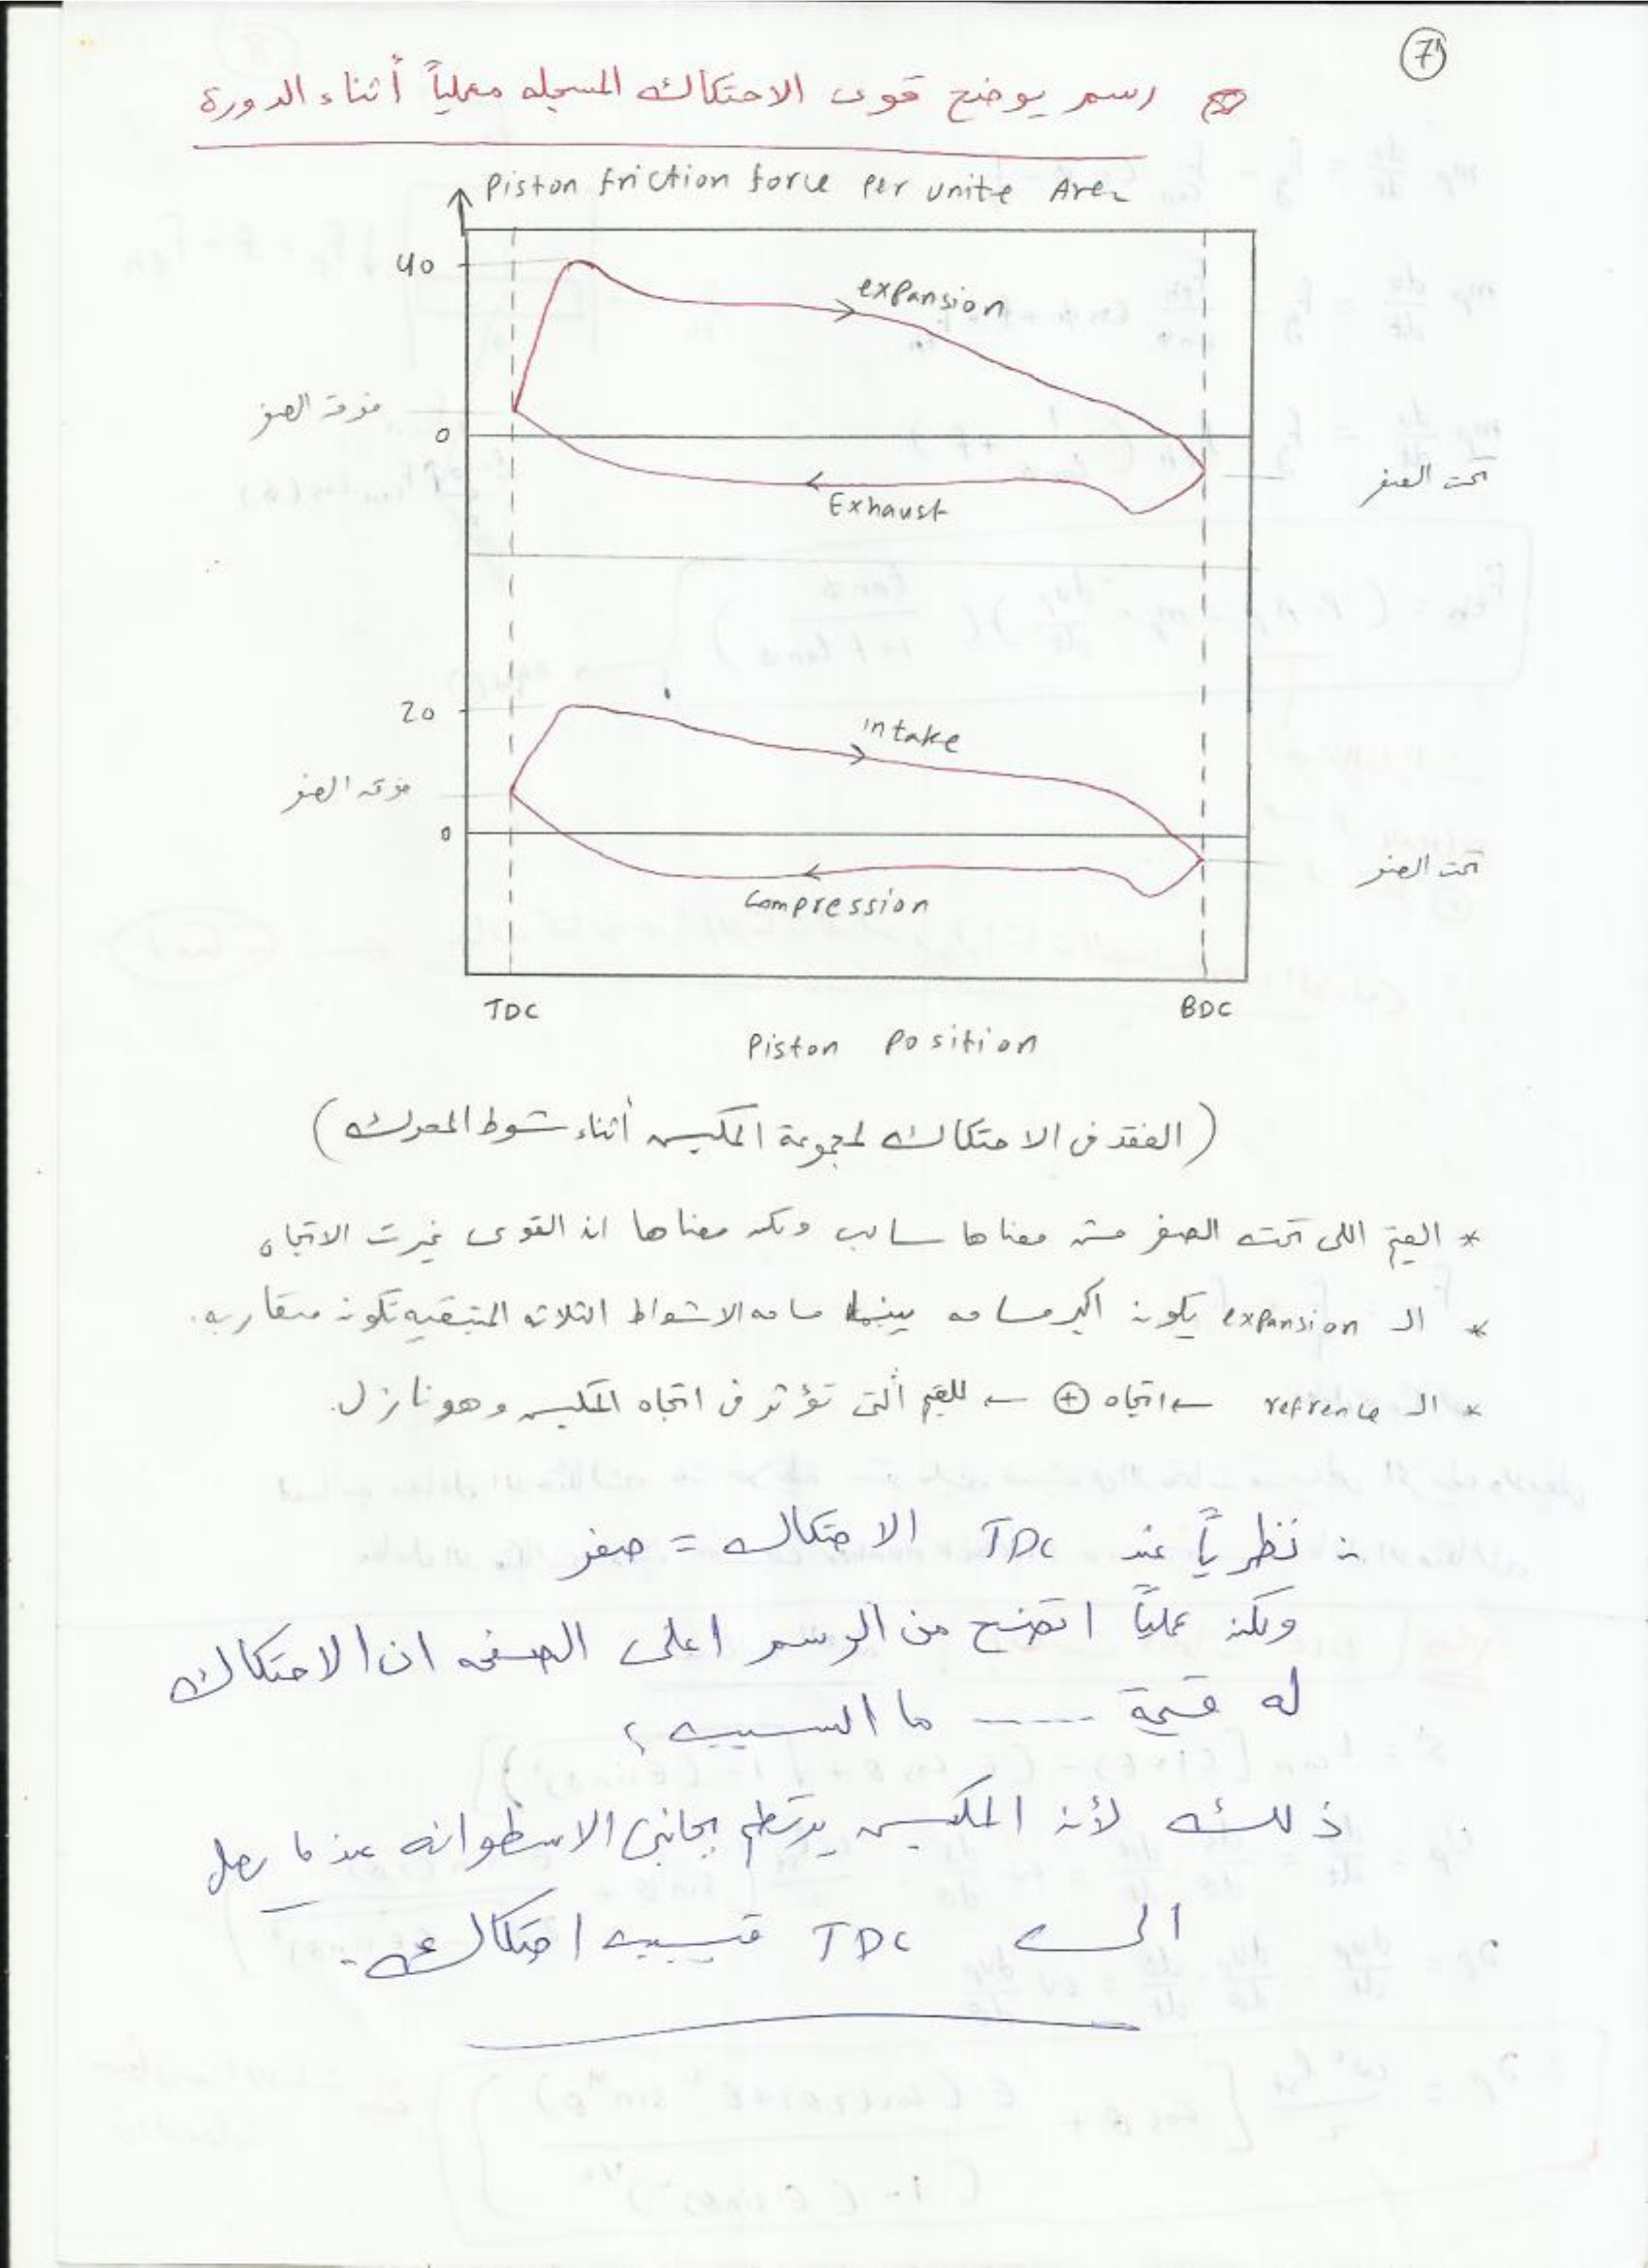 7
رسم يوضح قوى الاحتكاك المسجله معملياً أثناء الدورة
Piston friction force per unite Area
40
expansion
فوق الصفر
0
تحت الصفر
Exhaust
20
intake
فوق الصفر
0
تحت الصفر
Compression
TDC BDC
Piston Position
(الفقد فى الاحتكاك لمجموعة المكبس أثناء شوط المحرك)
* القيم اللى تحت الصفر مش معناها سالب ولكن معناها ان القوى غيرت الاتجاه
* الـ expansion يكون أكبر مساحه بينما مساحه الاشواط الثلاثه المتبقيه تكون متقاربه.
* الـ refrence ← اتجاه ⊕ ← للقيم ألتى تؤثر فى اتجاه المكبس وهو نازل.
نظرياً عند TDC الاحتكاك = صفر
ولكن عملياً اتضح من الرسم اعلى الصفحه ان الاحتكاك
له قيمة ...... ما السبب؟
ذلك لأن المكبس يرتطم بجانبى الاسطوانه عندما يصل
الى TDC فيسبب احتكاك.